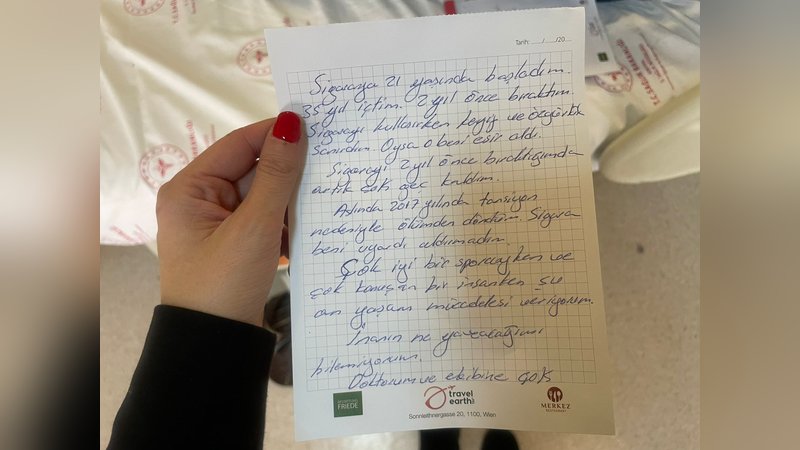 Tarih: ...../...../20.....
Sigaraya 21 yaşında başladım.
35 yıl içtim. 2 yıl önce bıraktım.
Sigarayı kullanırken keyif ve özgürlük
sanırdım. Oysa o beni esir aldı.
Sigarayı 2 yıl önce bıraktığımda
artık çok geç kaldım.
Aslında 2017 yılında tansiyon
nedeniyle ölümden döndüm. Sigara
beni uyardı aldırmadım.
Çok iyi bir sporcuyken ve
çok konuşan bir insanken şu
an yaşam mücadelesi veriyorum.
İnanın ne yapacağımı
bilemiyorum.
Doktorum ve ekibine çok
FRIEDE
travel
earth
MERKEZ
RESTAURANT
Sonnleithnergasse 20, 1100, Wien
T.C. SAĞLIK BAKANLIĞI